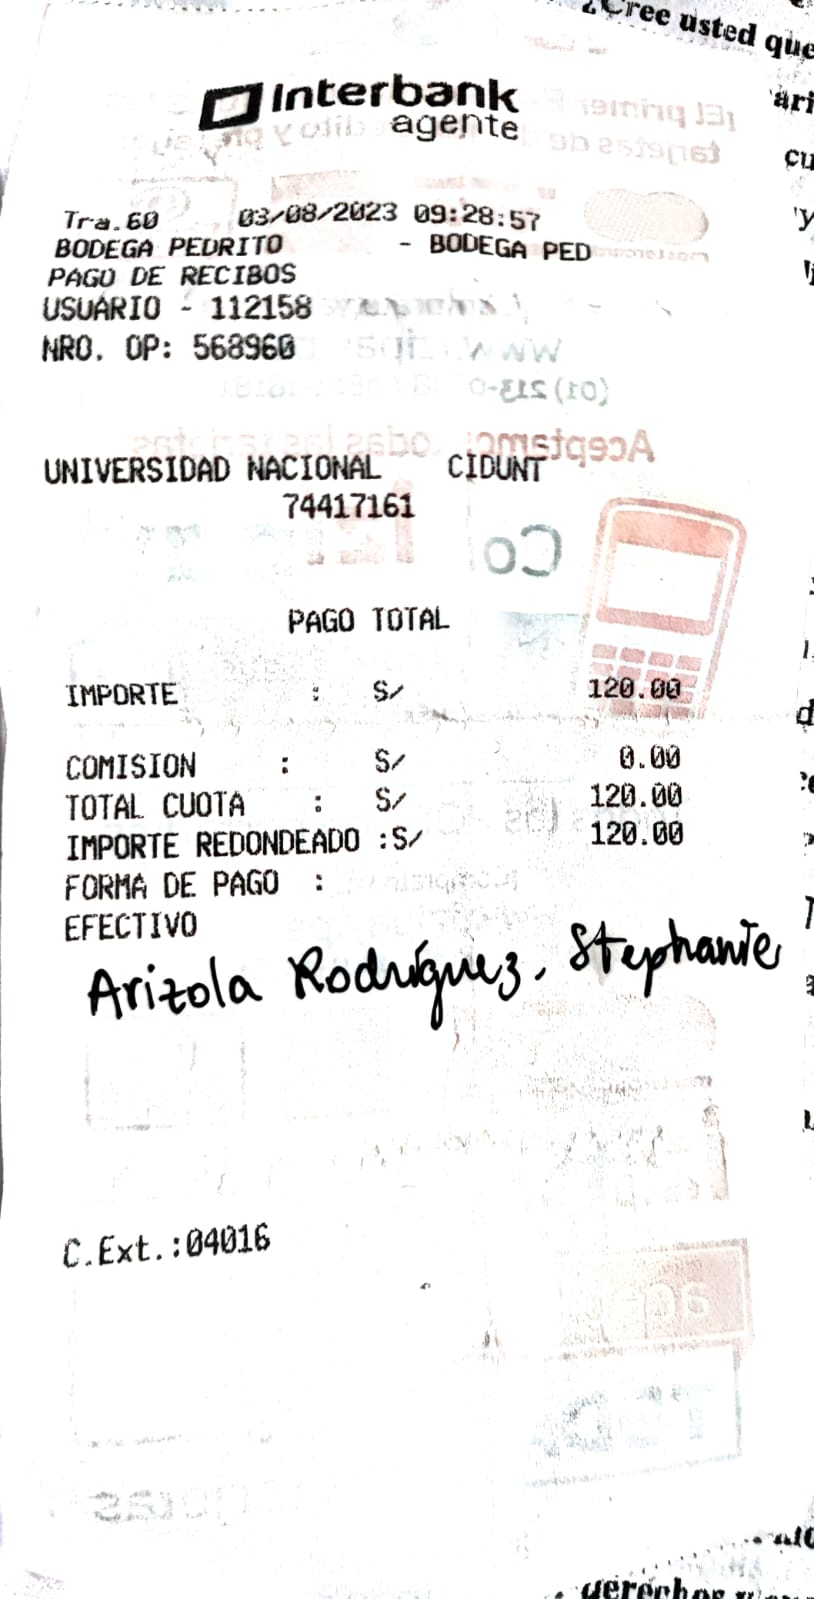 ¿Cree usted que
interbank
agente
Tra.60 03/08/2023 09:28:57
BODEGA PEDRITO - BODEGA PED
PAGO DE RECIBOS
USUARIO - 112158
NRO. OP: 568960
UNIVERSIDAD NACIONAL CIDUNT
74417161
PAGO TOTAL
IMPORTE : S/ 120.00
COMISION : S/ 0.00
TOTAL CUOTA : S/ 120.00
IMPORTE REDONDEADO :S/ 120.00
FORMA DE PAGO :
EFECTIVO
Arizola Rodríguez, Stephanie
C.Ext.:04016